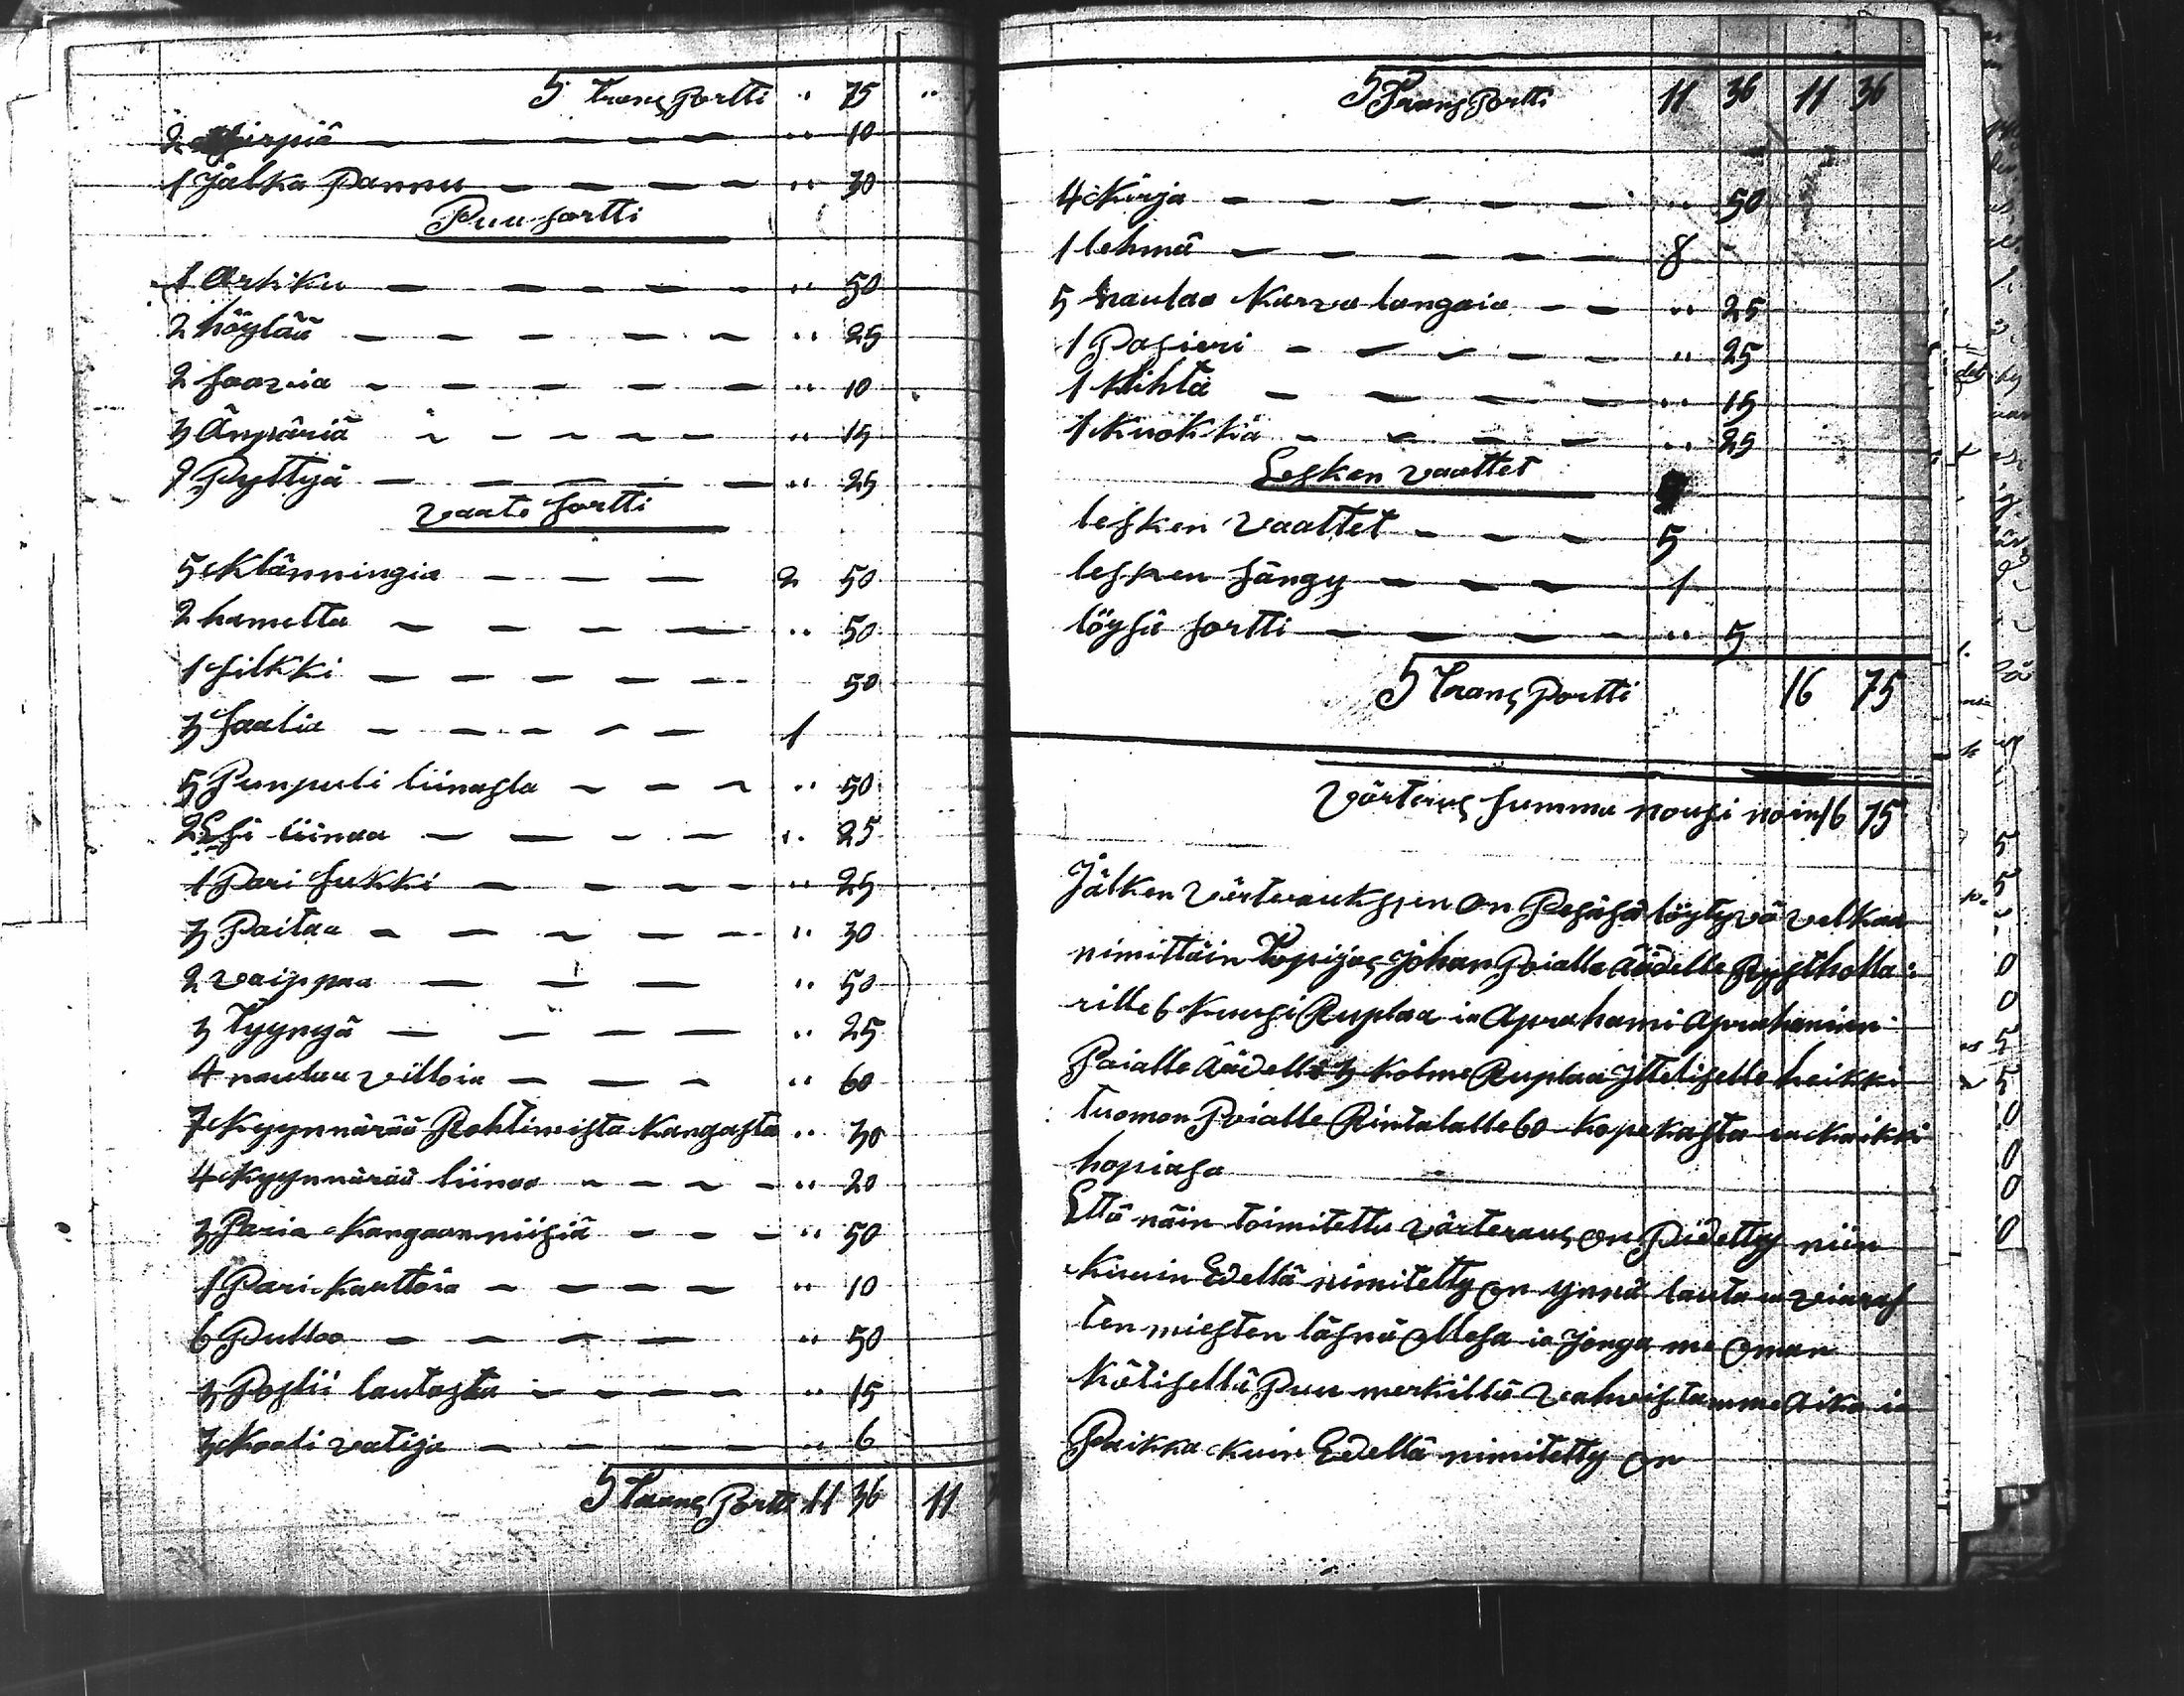 5 Transportti " 75 "
2 sirpiä " 10
1 Jalka Pannu " 30
Puu sortti
1 Arkiku " 50
2 höylää " 25
2 saavia " 10
3 Änpäriä " 15
9 Pyttyä " 25
vaate sortti
5 Klänningia 2 50
2 hametta " 50
1 silkki 50
3 saalia 1
5 Punpuli liinasta " 50
2 Esi liinaa " 25
1 Pari sukki " 25
3 Paitaa " 30
2 vaippaa " 50
3 Tyynyä " 25
4 naulaa villoia " 60
7 Kyynnärää Rohtimista Kangasta " 30
4 Kyynnärää liinaa " 20
3 Paria Kangaanniisiä " 50
1 Pari karttoia " 10
6 Pulloo " 50
3 Poslii lautasta " 15
3 Kaali vatija " 6
5 Transportti 11 36 11
5 Transportti 11 36 11 36
4 Kirja " 50
1 lehmä 8 "
5 naulaa Karva langaia " 25
1 Pasieri " 25
1 Kihlä " 15
1 Kuokka " 25
Lesken vaattet
lesken vaattet 5
lesken sängy 1
löysä sortti " 5
5 Transportti 16 75
Värteraus summa nousi noin 16 75
Jälken värterauksen on Pesäsä löytyvä velkaa
nimittäin Topijas Johan Poialle Äädelle Rystholla:
rille 6 Kuusi Ruplaa ia Aprahami Aprahamin
Poialle Äädelle 3 Kolme Ruplaa Ittelliselle heikki
tuomon Poialle Rintalalle 60 Kopekasta ia Kaikki
hopiasa
Että näin toimitettu värteraus on Pidetty niin
Kuuin Edellä nimitetty on ynnä lauta ia vieras
ten miesten läsnä ollesa ia Jonga me oman
Kätisellä Puu merkillä vahvistamme Aika ia
Paikka Kuin Edellä nimitetty on